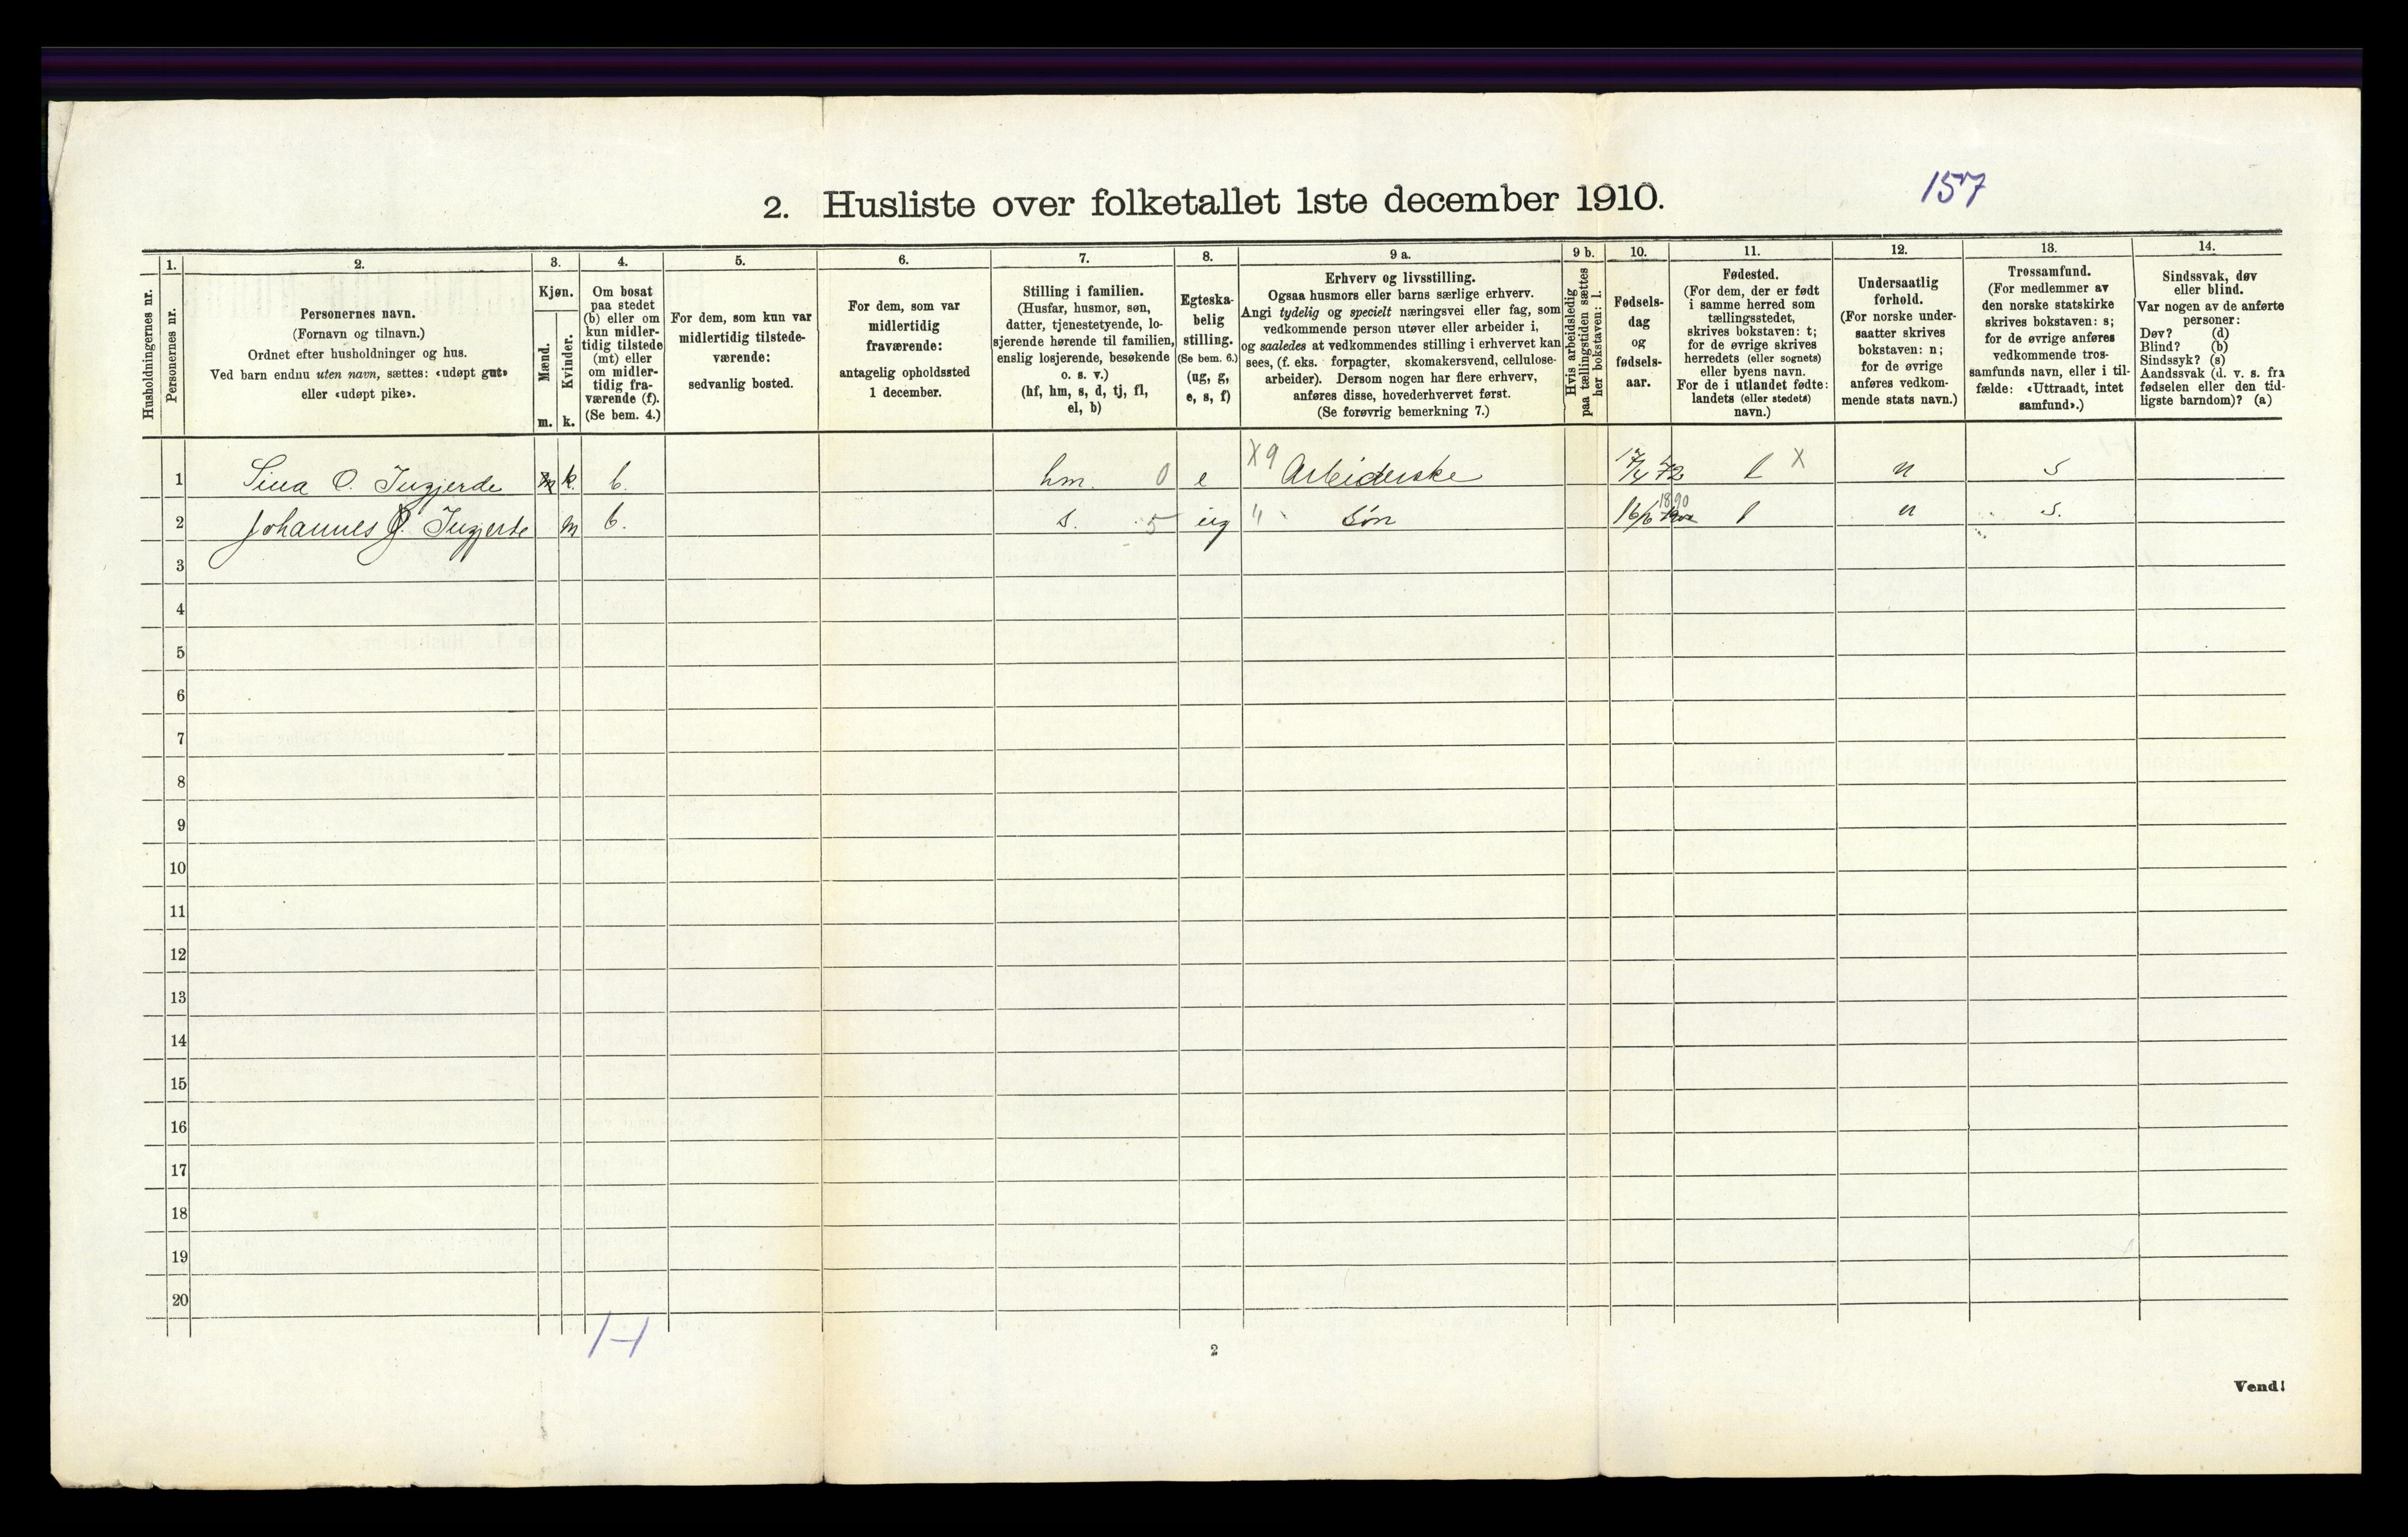 157
2. Husliste over folketallet 1ste december 1910.
Husholdningernes nr.
1.
Personernes nr.
2.
Personernes navn.
(Fornavn og tilnavn.)
Ordnet efter husholdninger og hus.
Ved barn endnu uten navn, sættes: «udøpt gut»
eller «udøpt pike».
3.
Kjøn.
Mænd.
Kvinder.
m. k.
4.
Om bosat
paa stedet
(b) eller om
kun midler-
tidig tilstede
(mt) eller
om midler-
tidig fra-
værende (f).
(Se bem. 4.)
5.
For dem, som kun var
midlertidig tilstede-
værende:
sedvanlig bosted.
6.
For dem, som var
midlertidig
fraværende:
antagelig opholdssted
1 december.
7.
Stilling i familien.
(Husfar, husmor, søn,
datter, tjenestetyende, lo-
sjerende hørende til familien,
enslig losjerende, besøkende
o. s. v.)
(hf, hm, s, d, tj, fl,
el, b)
8.
Egteska-
belig
stilling.
(Se bem. 6.)
(ug, g,
e, s, f)
9 a.
Erhverv og livsstilling.
Ogsaa husmors eller barns særlige erhverv.
Angi tydelig og specielt næringsvei eller fag, som
vedkommende person utøver eller arbeider i,
og saaledes at vedkommendes stilling i erhvervet kan
sees, (f. eks. forpagter, skomakersvend, cellulose-
arbeider). Dersom nogen har flere erhverv,
anføres disse, hovederhvervet først.
(Se forøvrig bemerkning 7.)
9 b.
Hvis arbeidsledig
paa tællingstiden sættes
her bokstaven: l.
10.
Fødsels-
dag
og
fødsels-
aar.
11.
Fødested.
(For dem, der er født
i samme herred som
tællingsstedet,
skrives bokstaven: t;
for de øvrige skrives
herredets (eller sognets)
eller byens navn.
For de i utlandet fødte:
landets (eller stedets)
navn.)
12.
Undersaatlig
forhold.
(For norske under-
saatter skrives
bokstaven: n;
for de øvrige
anføres vedkom-
mende stats navn.)
13.
Trossamfund.
(For medlemmer av
den norske statskirke
skrives bokstaven: s;
for de øvrige anføres
vedkommende tros-
samfunds navn, eller i til-
fælde: «Uttraadt, intet
samfund».)
14.
Sindssvak, døv
eller blind.
Var nogen av de anførte
personer:
Døv? (d)
Blind? (b)
Sindssyk? (s)
Aandssvak (d. v. s. fra
fødselen eller den tid-
ligste barndom)? (a)
1 Sina O. Ingjerde k. b. hm. 0 e X9 Arbeiderske 17/4 72 t X n s
2 Johannes J. Ingjerde m b. s. 5 ug " søn 16/6 1890 t n s.
3
4
5
6
7
8
9
10
11
12
13
14
15
16
17
18
19
20
1-1
2
Vend!